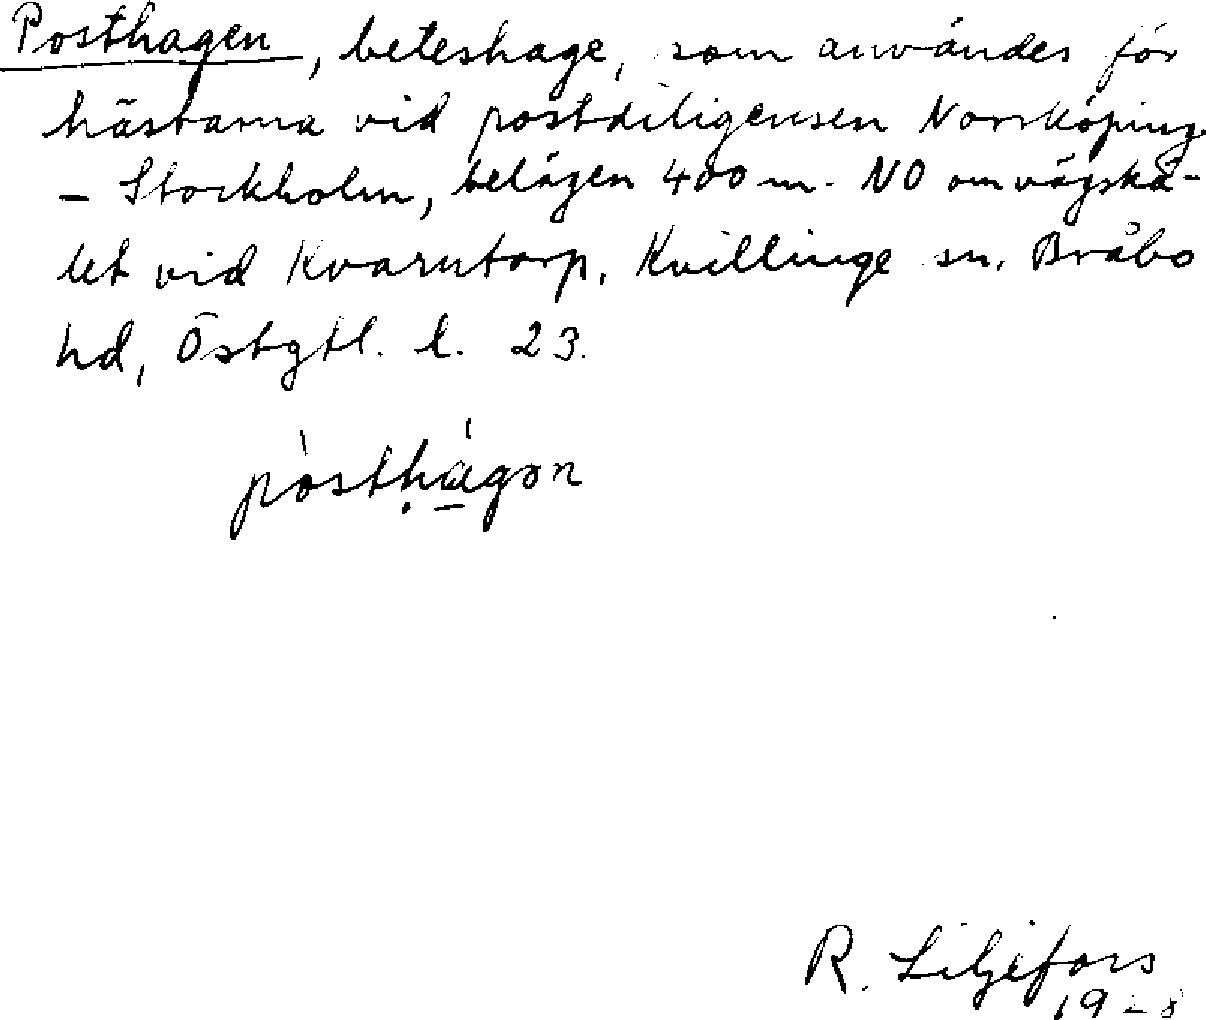 Posthagen, beteshage, som användes för
hästarna vid postdiligensen Norrköping
- Stockholm, belägen 400 m. NO om vägskä-
let vid Kvarntorp, Kvillinge sn, Bråbo
hd, Östgtl. l. 23.
pòsthágən
R. Liljefors